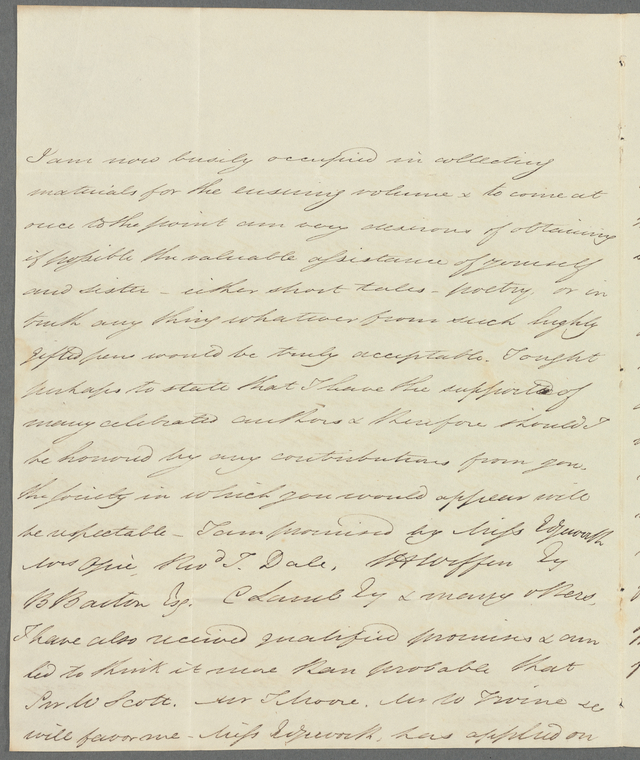 I am now busily occupied in collecting
materials for the ensuing volume & to come at
once to the point am very desirous of obtaining
if possible the valuable assistance of yourself
and sister – either short tales – poetry or in
truth any thing whatever from such highly
gifted pens would be truly acceptable. I ought
perhaps to state that I have the support of
many celebrated authors & therefore should I
be honored by any contributions from you.
the society in which you would appear will
be respectable – I am promised by Miss Edgeworth
Mrs Opie, Revd T. Dale, Wiffen Esq
B Barton Esq. C Lamb Esq & many others.
I have also received qualified promises & am
led to think it more than probable that
Sir W Scott. Mr T Moore. Mr W Irvine &c
will favor me – Miss Edgeworth, has applied on